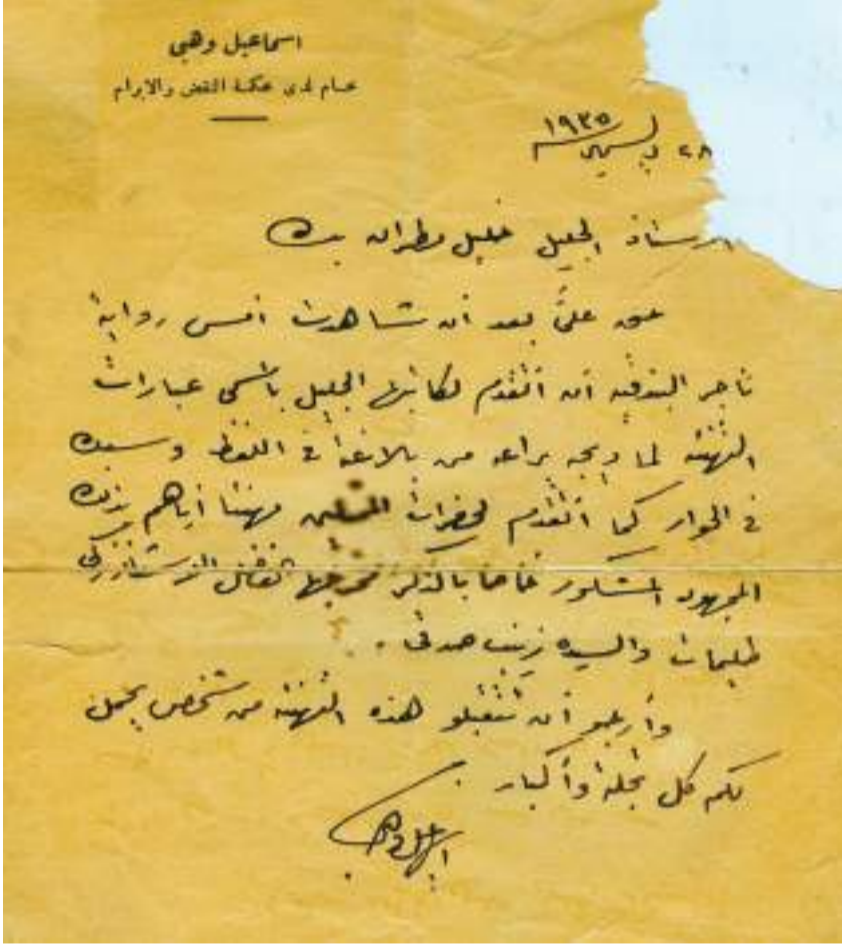 اسماعيل وهبى
محام لدى محكمة النقض والابرام
٢٨ ديسمبر ١٩٣٥
الجليل خليل مطران بك
حق علىّ بعد أن شاهدت أمس رواية
تاجر البندقية أن أتقدم لكاتبها الجليل بأسمى عبارات
التهنئة لما دبجه يراعه من بلاغة فى اللفظ وسبك
فى الحوار كما أتقدم لحضرات الممثلين مهنئا أياهم بذلك
المجهود المشكور خاصا بالذكر مخرجها الأستاذ زكى
طليمات والسيدة زينب صدقى .
وأرجو أن تتقبلو هذه التهنئة من شخص يحمل
لكم كل تجلة وأكبار .
اسماعيل وهبى